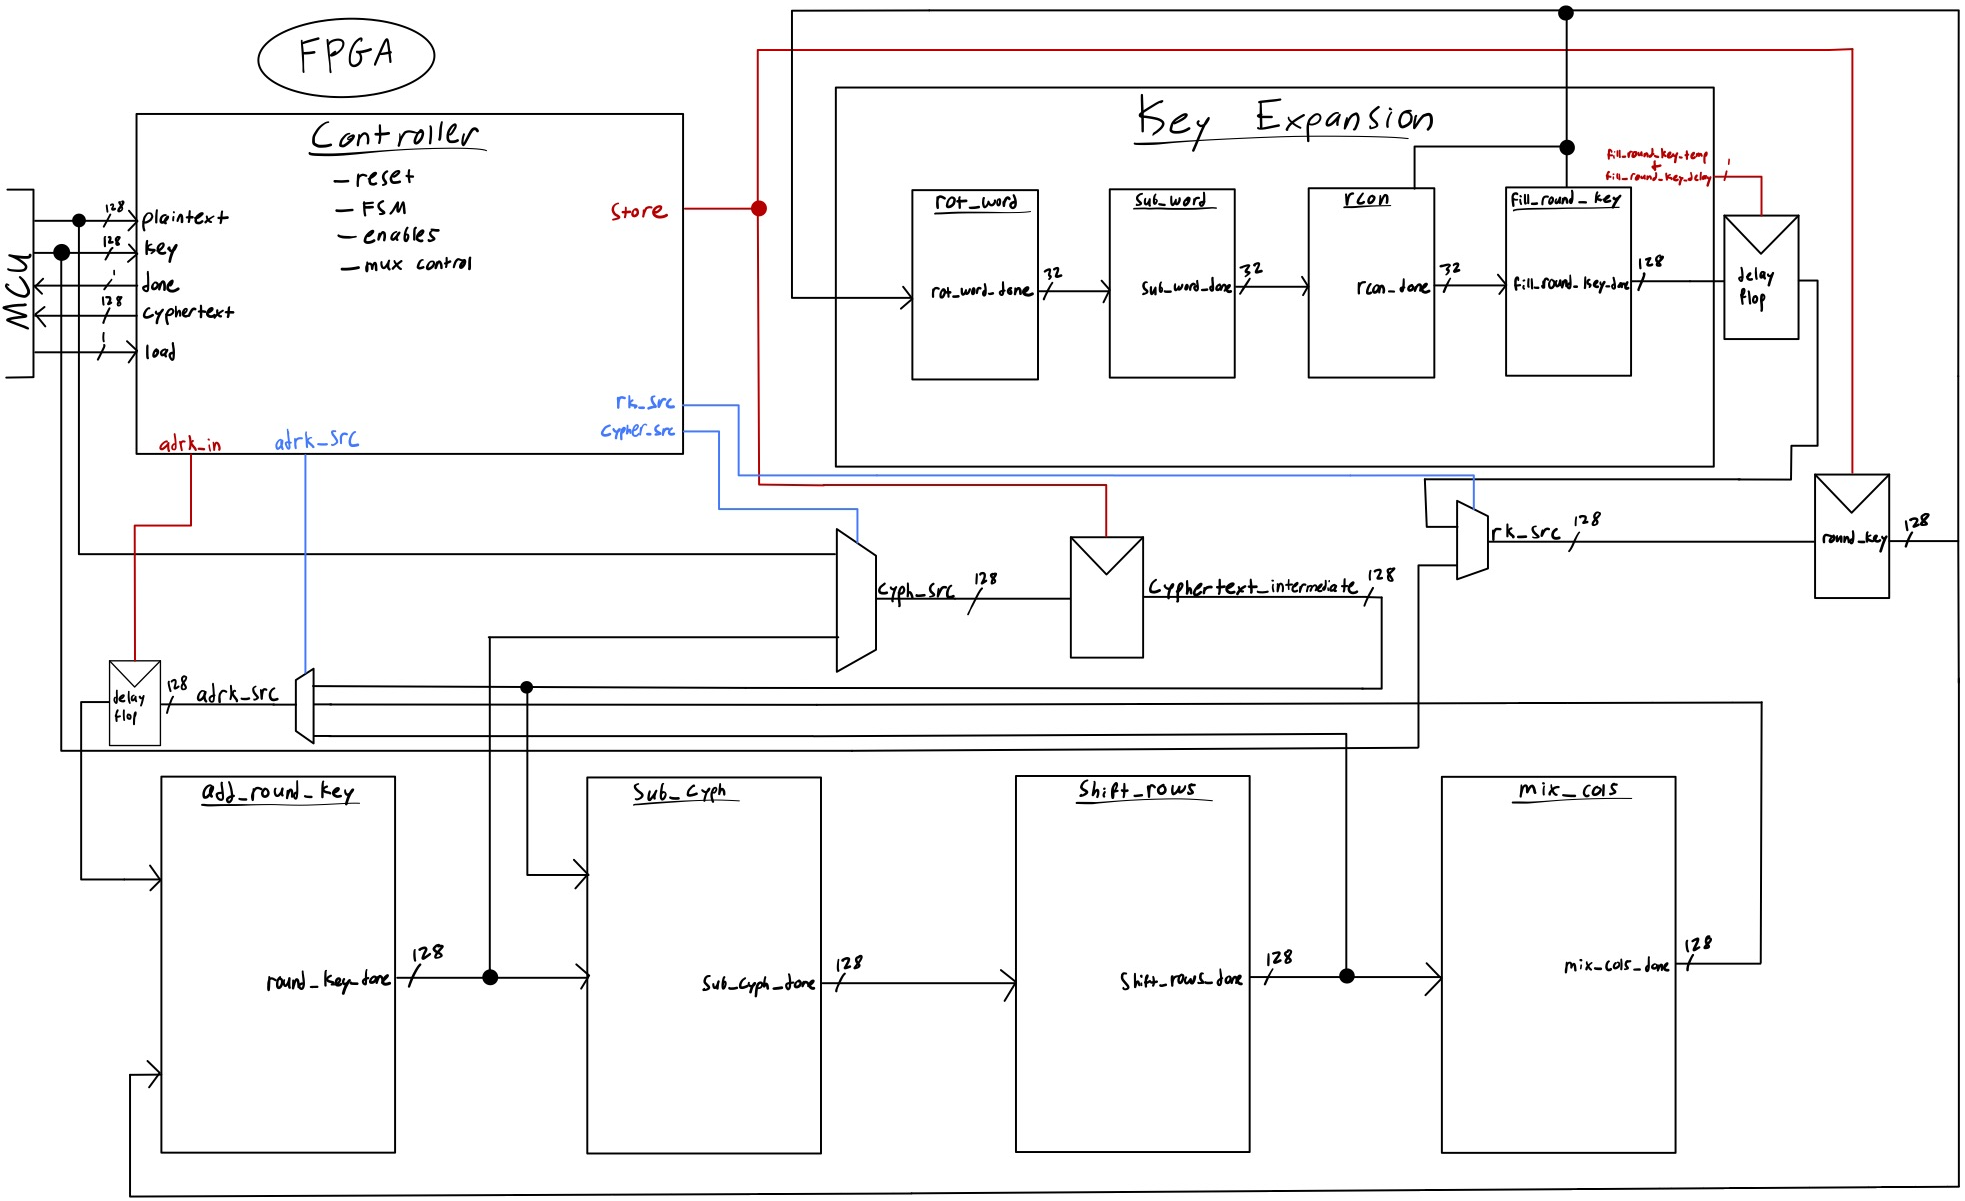 FPGA
Controller
- reset
- FSM
- enables
- mux control
Store
MCU
128
plaintext
128
key
1
done
128
cyphertext
1
load
rk_src
cypher_src
adrk_in
adrk_src
Key Expansion
fill_round_key_temp
+
fill_round_key_delay
1
rot_word
rot_word_done
32
sub_word
sub_word_done
32
rcon
rcon_done
32
fill_round_key
fill_round_key_done
128
delay
flop
cyph_src
128
cyphertext_intermediate
128
rk_src
128
round_key
128
delay
flop
128
adrk_src
add_round_key
round_key_done
128
Sub_Cyph
Sub_Cyph_done
128
Shift_rows
Shift_rows_done
128
mix_cols
mix_cols_done
128